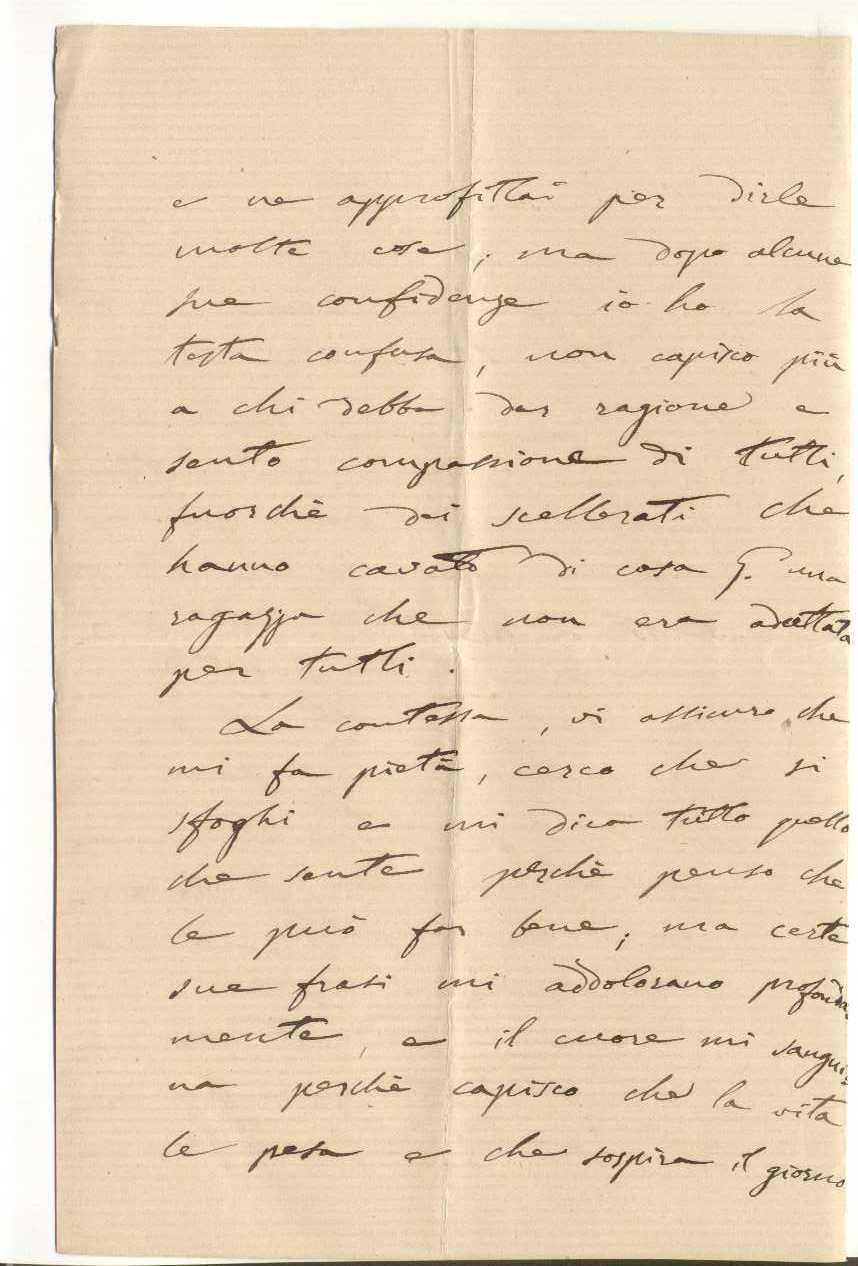 e ne approfittai per dirle
molte cose; ma dopo alcune
sue confidenze io ho la
testa confusa, non capisco più
a chi debba dar ragione e
sento compassione di tutti,
fuorchè dei scellerati che
hanno cavato di casa G. una
ragazza che non era adattata
per tutti.
La contessa, vi assicuro che
mi fa pietà, cerco che si
sfoghi e mi dica tutto quello
che sente perchè penso che
le può far bene; ma certe
sue frasi mi addolorano profonda
mente, e il cuore mi sangui
na perchè capisco che la vita
le pesa e che sospira il giorno